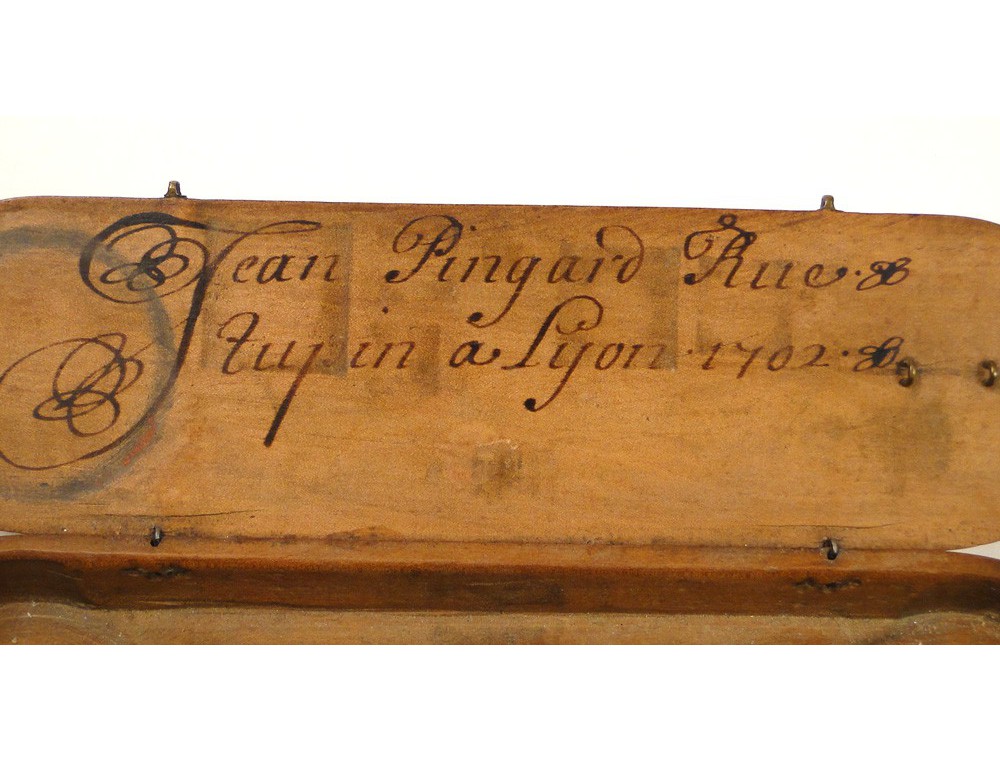 Jean Pingard Rue.
Stupin à Lyon. 1702.